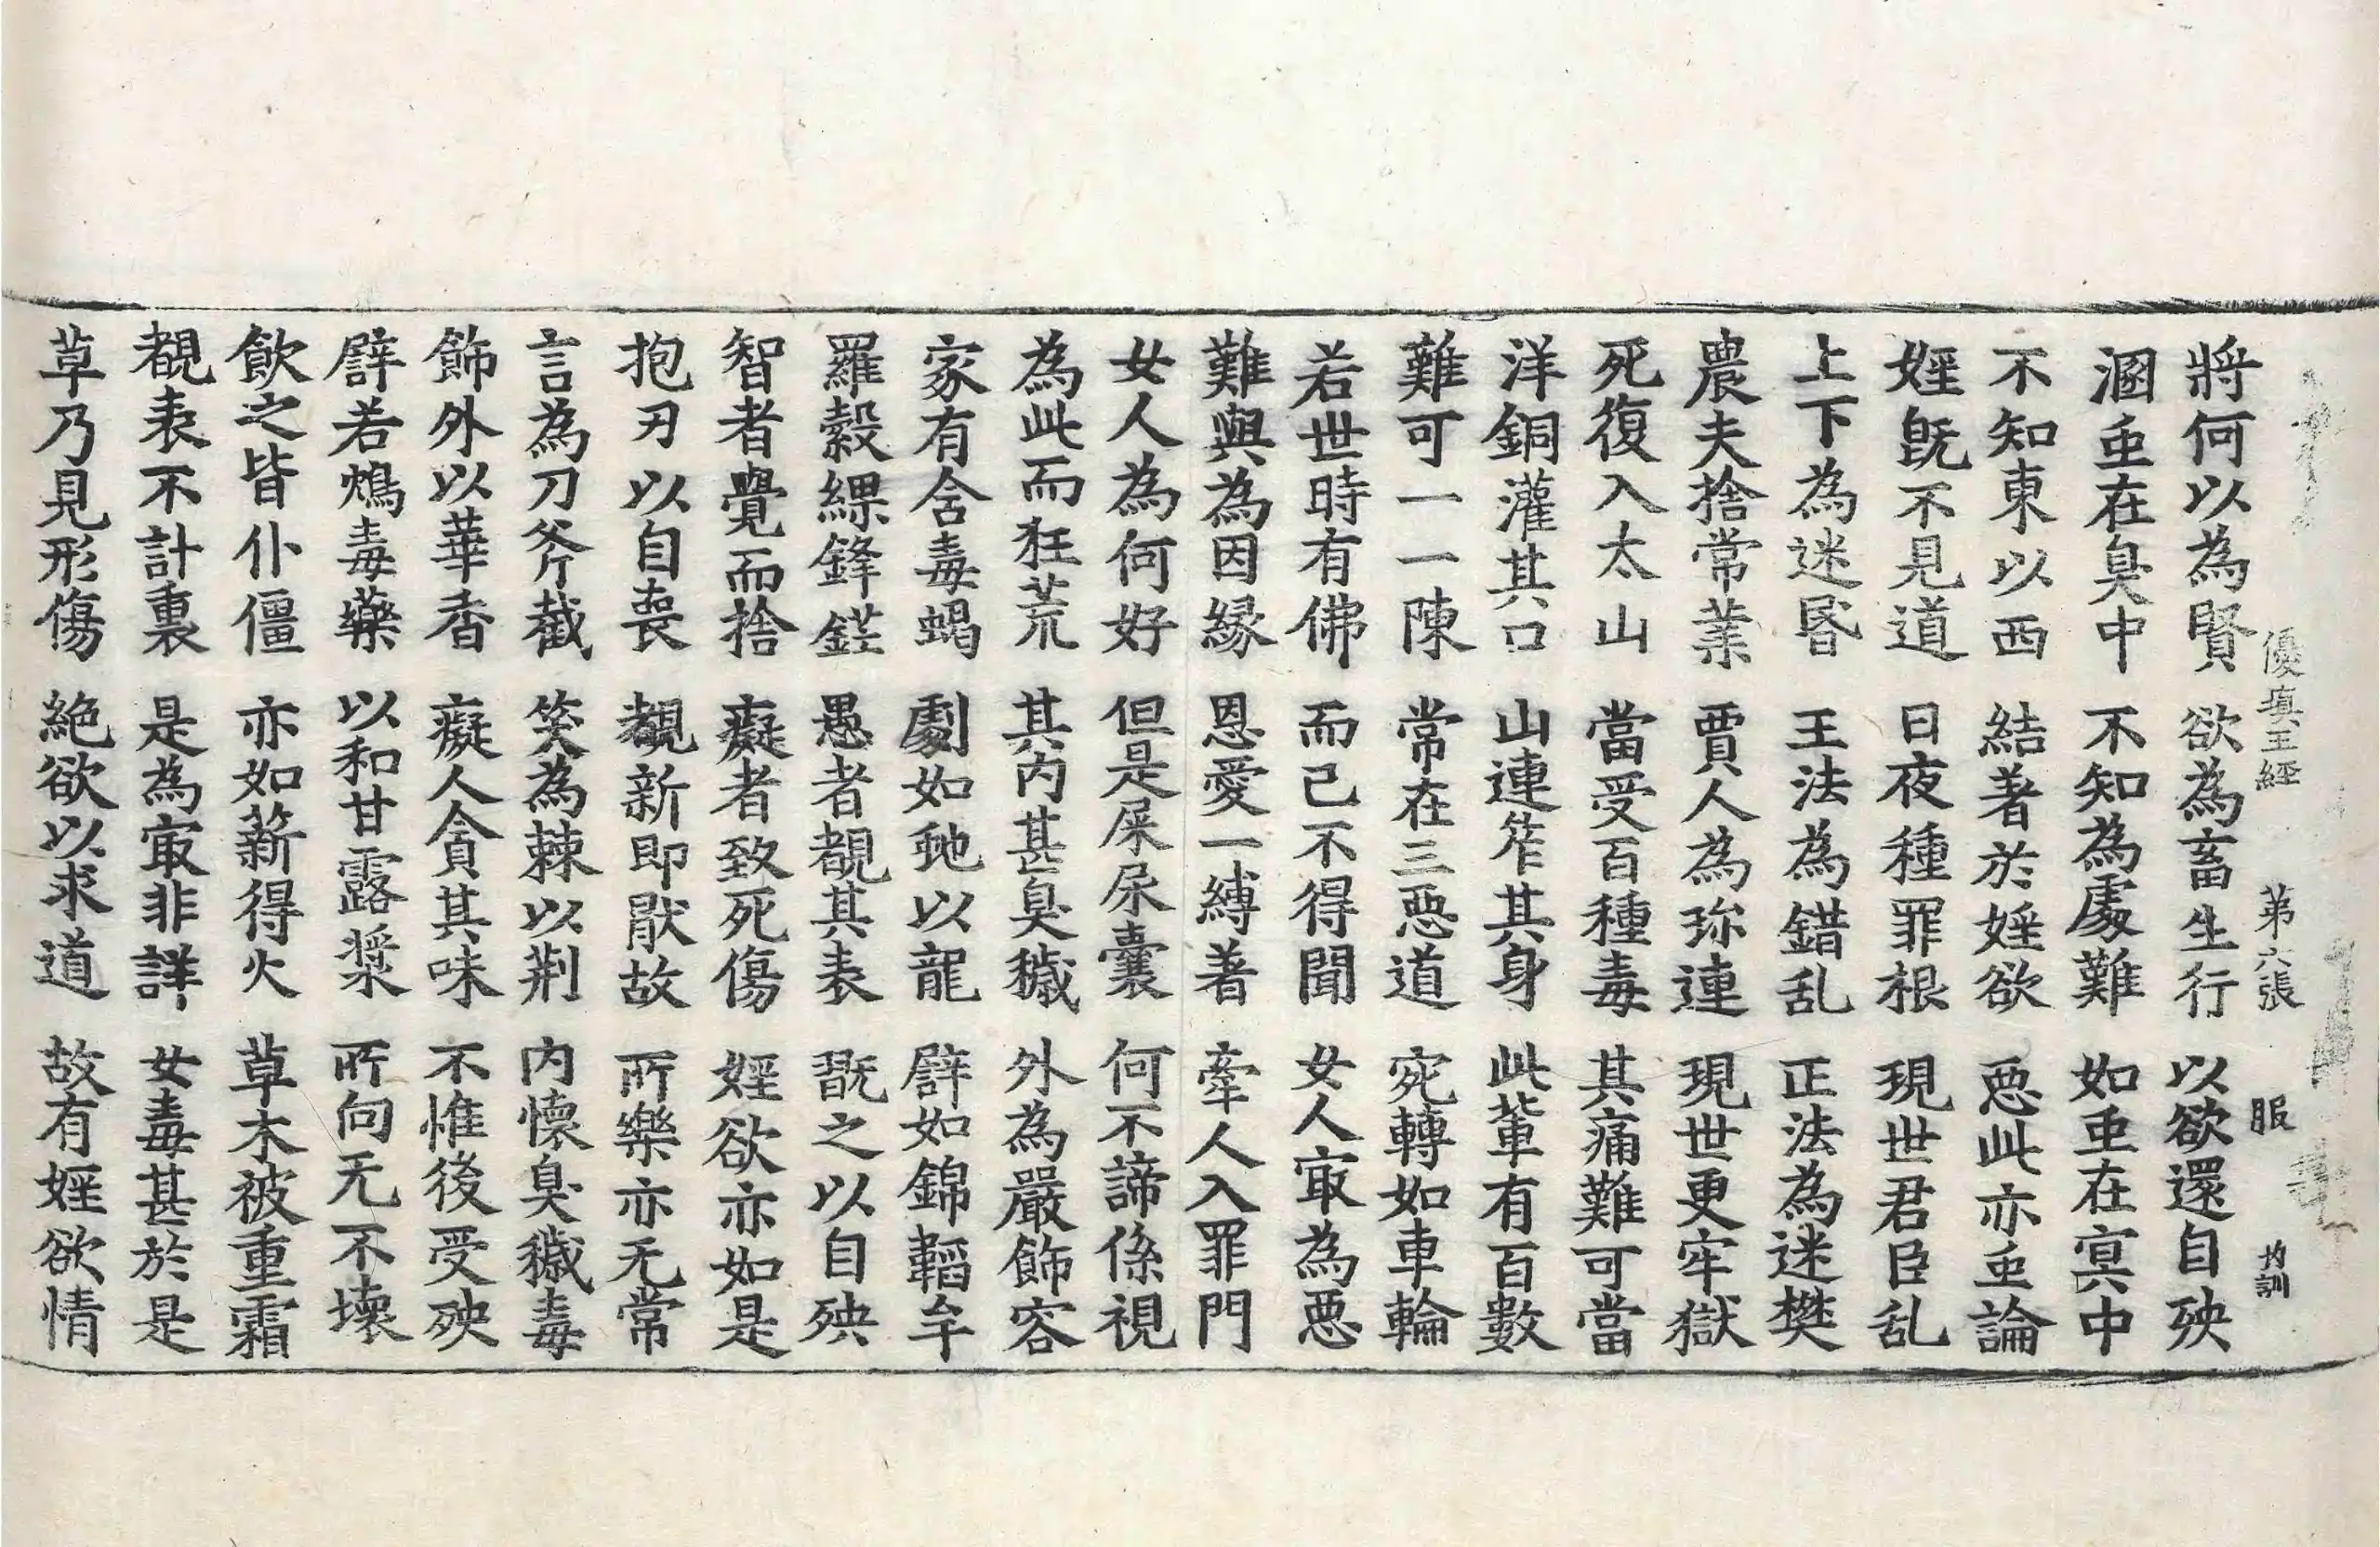 優塡王經 第六張 服 均訓
將何以為賢 欲為畜生行 以欲還自殃
溷䖝在臭中 不知為處難 如䖝在㝠中
不知東以西 結著於婬欲 惡此亦䖝論
婬旣不見道 日夜種罪根 現世君臣乱
上下為迷昬 王法為錯乱 正法為迷樊
農夫捨常業 賈人為珎連 現世更牢獄
死復入太山 當受百種毒 其痛難可當
洋銅灌其口 山連笮其身 此軰有百數
難可一一陳 常在三惡道 宛轉如車輪
若世時有佛 而己不得聞 女人㝡為惡
難與為因縁 恩愛一縛著 牽人入罪門
女人為何好 但是屎尿囊 何不諦係視
為此而狂荒 其内甚臭穢 外為嚴飾容
家有含毒蝎 劇如虵以龍 譬如錦韜牟
羅縠緤鋒鋩 愚者覩其表 翫之以自殃
智者覺而捨 癡者致死傷 婬欲亦如是
抱刃以自喪 覩新即猒故 所樂亦无常
言為刀斧截 笑為棘以荆 内懷臭穢毒
飾外以華香 癡人貪其味 不惟後受殃
譬若鴆毒藥 以和甘露漿 所向无不壞
飲之皆仆僵 亦如薪得火 草木被重霜
覩表不計裏 是為㝡非詳 女毒甚於是
草乃見形傷 絶欲以求道 故有婬欲情